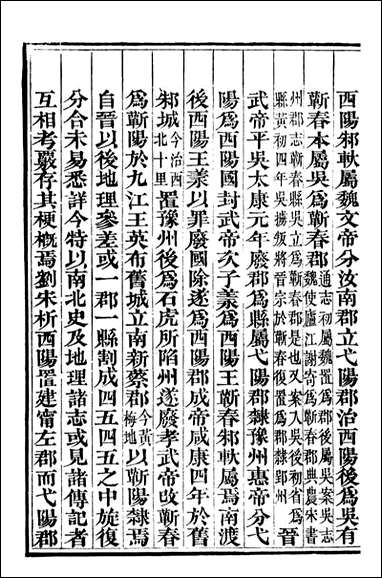 西陽邾軑屬魏文帝分汝南郡立弋陽郡治西陽後爲吳有
蘄春本屬吳爲蘄春郡通志初屬魏置爲郡後屬吳案吳志魏使廬江謝奇爲蘄春郡典農宋書
州郡志蘄春縣吳立爲蘄春郡是也又案入吳後初省爲縣黃初四年吳擄叛將晉宗於蘄春復置爲郡隸郢州晉
武帝平吳太康元年廢郡爲縣屬弋陽郡隸豫州惠帝分弋
陽爲西陽國封武帝次子羕爲西陽王蘄春邾軑屬焉南渡
後西陽王羕以罪廢國除遂爲西陽郡成帝咸康四年於舊
邾城今治西北十里置豫州後爲石虎所陷州遂廢孝武帝改蘄春
爲蘄陽於九江王英布舊城立南新蔡郡今黃梅地以蘄陽隸焉
自晉以後地理參差或一郡一縣割成四五四五之中旋復
分合未易悉詳今特以南北史及地理諸志或見諸傳記者
互相考覈存其梗概焉劉宋析西陽置建甯左郡而弋陽郡